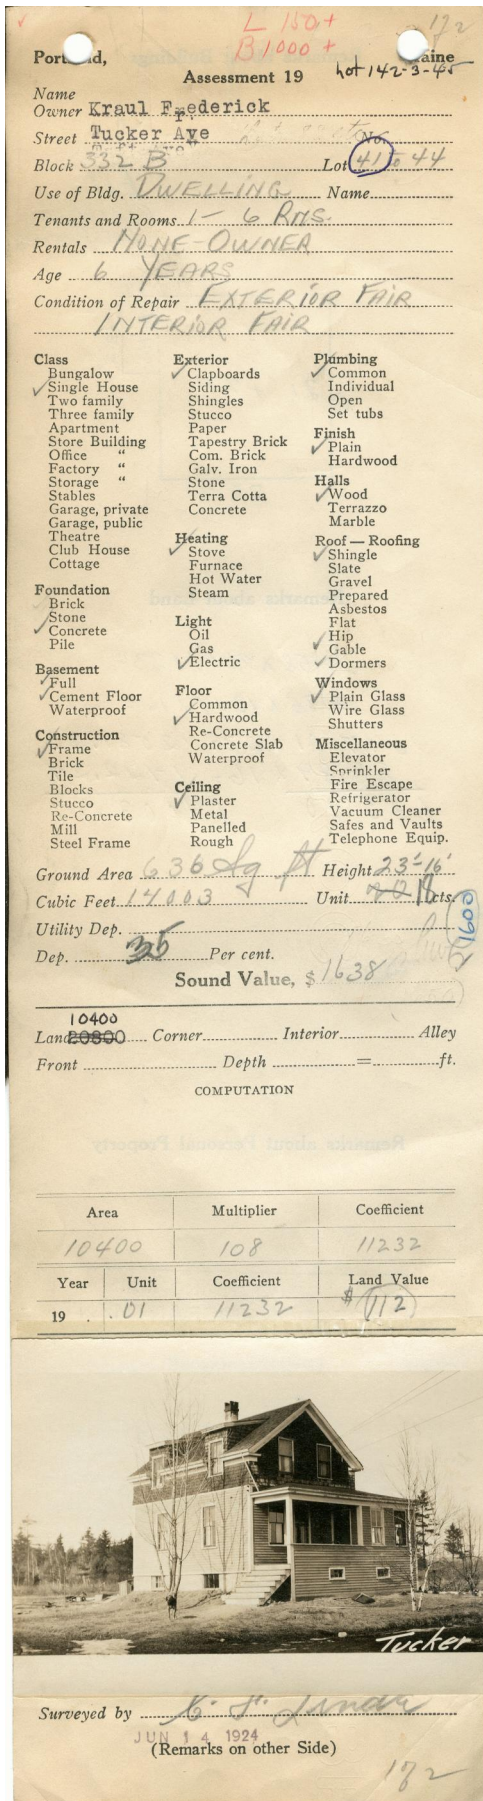 L 150+
172
B 1000 +
Portland, Maine
Lot 142-3-45
Assessment 19
Name
Owner Kraul Frederick F.
Street Tucker Ave No.
Block 332 B Lot 41 to 44
Use of Bldg. DWELLING Name
Tenants and Rooms 1 - 6 RMS.
Rentals NONE-OWNER
Age 6 YEARS
Condition of Repair EXTERIOR FAIR
INTERIOR FAIR
Class
Bungalow
✓ Single House
Two family
Three family
Apartment
Store Building
Office "
Factory "
Storage "
Stables
Garage, private
Garage, public
Theatre
Club House
Cottage
Foundation
Brick
Stone
✓ Concrete
Pile
Basement
✓ Full
✓ Cement Floor
Waterproof
Construction
✓ Frame
Brick
Tile
Blocks
Stucco
Re-Concrete
Mill
Steel Frame
Exterior
✓ Clapboards
Siding
Shingles
Stucco
Paper
Tapestry Brick
Com. Brick
Galv. Iron
Stone
Terra Cotta
Concrete
Heating
✓ Stove
Furnace
Hot Water
Steam
Light
Oil
Gas
✓ Electric
Floor
Common
✓ Hardwood
Re-Concrete
Concrete Slab
Waterproof
Ceiling
✓ Plaster
Metal
Panelled
Rough
Plumbing
✓ Common
Individual
Open
Set tubs
Finish
✓ Plain
Hardwood
Halls
✓ Wood
Terrazzo
Marble
Roof — Roofing
✓ Shingle
Slate
Gravel
Prepared
Asbestos
Flat
Hip
✓ Gable
✓ Dormers
Windows
✓ Plain Glass
Wire Glass
Shutters
Miscellaneous
Elevator
Sprinkler
Fire Escape
Refrigerator
Vacuum Cleaner
Safes and Vaults
Telephone Equip.
Ground Area 636 Sq ft Height 23'-16'
Cubic Feet 14003 Unit 20 18 cts.
Utility Dep.
1600
Dep. 35 Per cent.
Sound Value, $ 1638
10400
Land 20800 Corner Interior Alley
Front Depth = ft.
COMPUTATION
Area Multiplier Coefficient
10400 108 11232
Year Unit Coefficient Land Value
19 .01 11232 $ 112
Tucker
Surveyed by
JUN 14 1924
(Remarks on other Side)
172